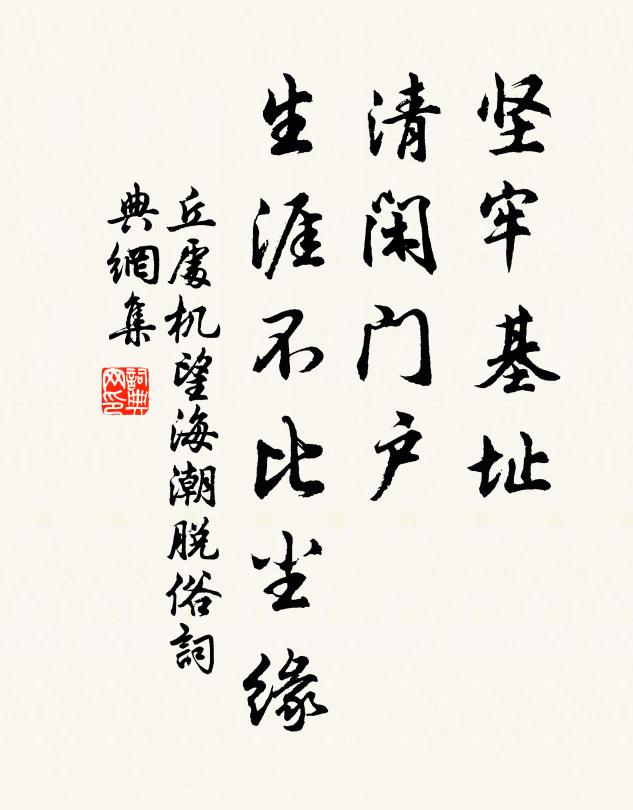 坚牢基址
清閑门户
生涯不比尘缘
丘處机望海潮脱俗詞
典網集
詞典
网印